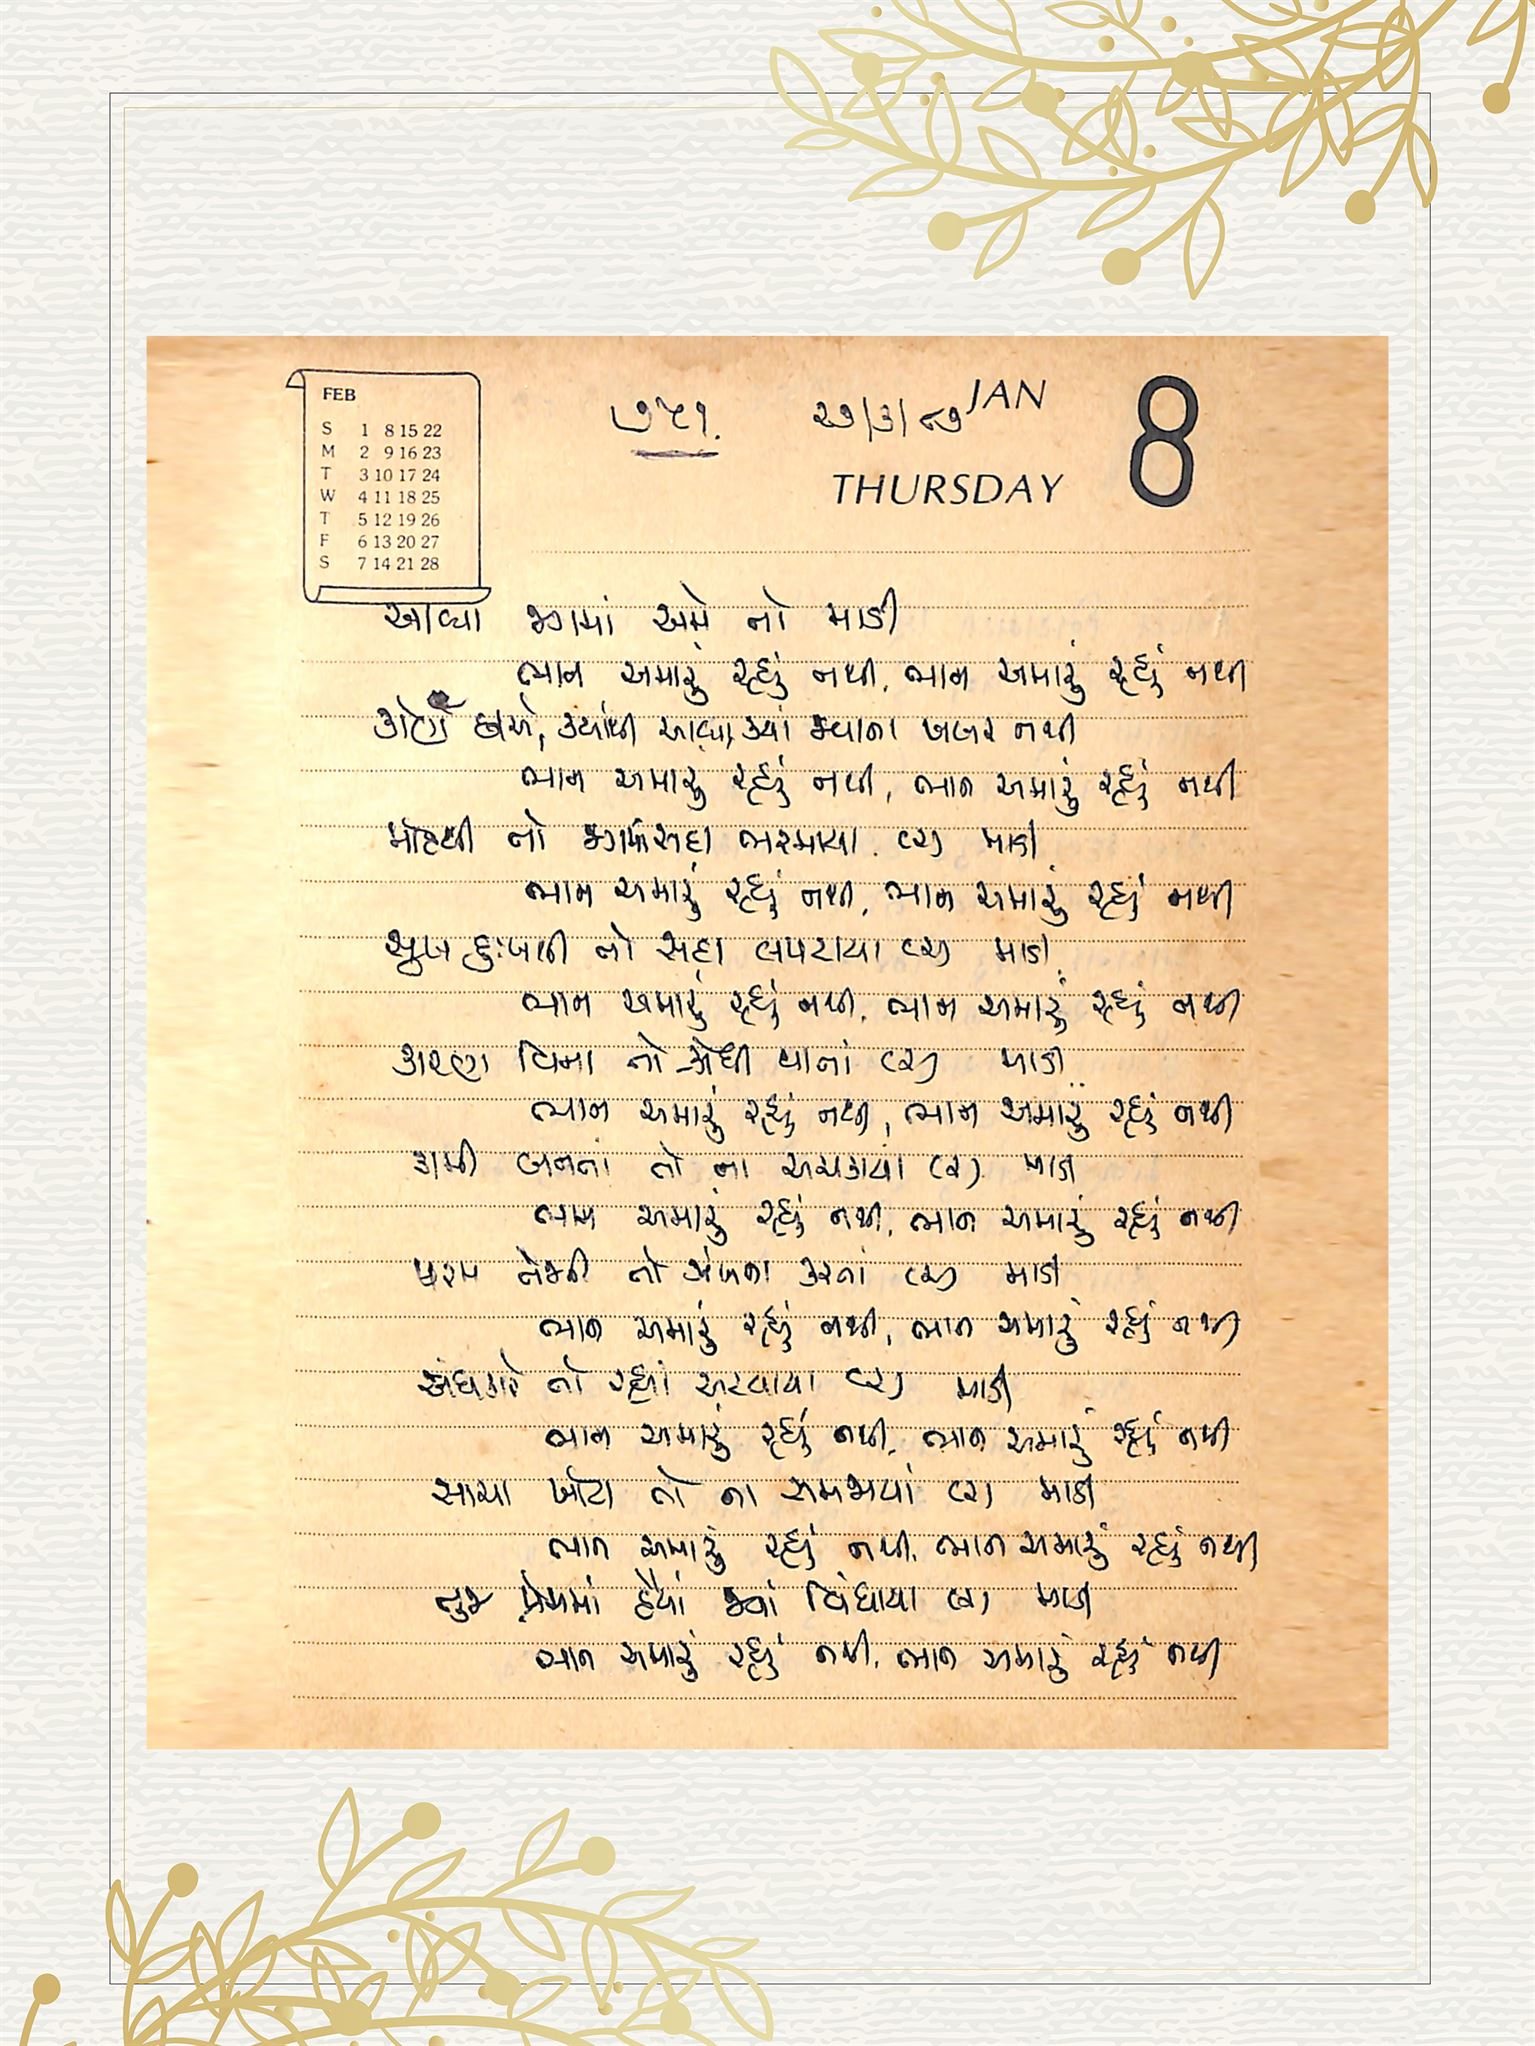 FEB
S 1 8 15 22
M 2 9 16 23
T 3 10 17 24
W 4 11 18 25
T 5 12 19 26
F 6 13 20 27
S 7 14 21 28
૭૫૧. ૨૭/૩/૮૭ JAN 8
THURSDAY
આવ્યા જગમાં અમે તો માડી
ભાન અમારું રહ્યું નથી, ભાન અમારું રહ્યું નથી
કોણ છીએ, ક્યાંથી આવ્યા, ક્યાં જવાના ખબર નથી
ભાન અમારું રહ્યું નથી, ભાન અમારું રહ્યું નથી
મોહથી તો જગમાં સદા ભરમાયા (૨) માડી
ભાન અમારું રહ્યું નથી, ભાન અમારું રહ્યું નથી
સુખ દુઃખથી તો સદા લપટાયા (૨) માડી
ભાન અમારું રહ્યું નથી, ભાન અમારું રહ્યું નથી
કારણ વિના તો ક્રોધી થાતાં (૨) માડી
ભાન અમારું રહ્યું નથી, ભાન અમારું રહ્યું નથી
કામી બનતાં તો ના અચકાયા (૨) માડી
ભાન અમારું રહ્યું નથી, ભાન અમારું રહ્યું નથી
પરમ તેજથી તો અંજાતા કરતાં (૨) માડી
ભાન અમારું રહ્યું નથી, ભાન અમારું રહ્યું નથી
અંધકારે તો રહ્યાં અટવાયા (૨) માડી
ભાન અમારું રહ્યું નથી, ભાન અમારું રહ્યું નથી
સાચા ખોટા તો ના સમજાયાં (૨) માડી
ભાન અમારું રહ્યું નથી, ભાન અમારું રહ્યું નથી
તુજ પ્રેમમાં હૈયાં જ્યાં વિંધાયા (૨) માડી
ભાન અમારું રહ્યું નથી, ભાન અમારું રહ્યું નથી